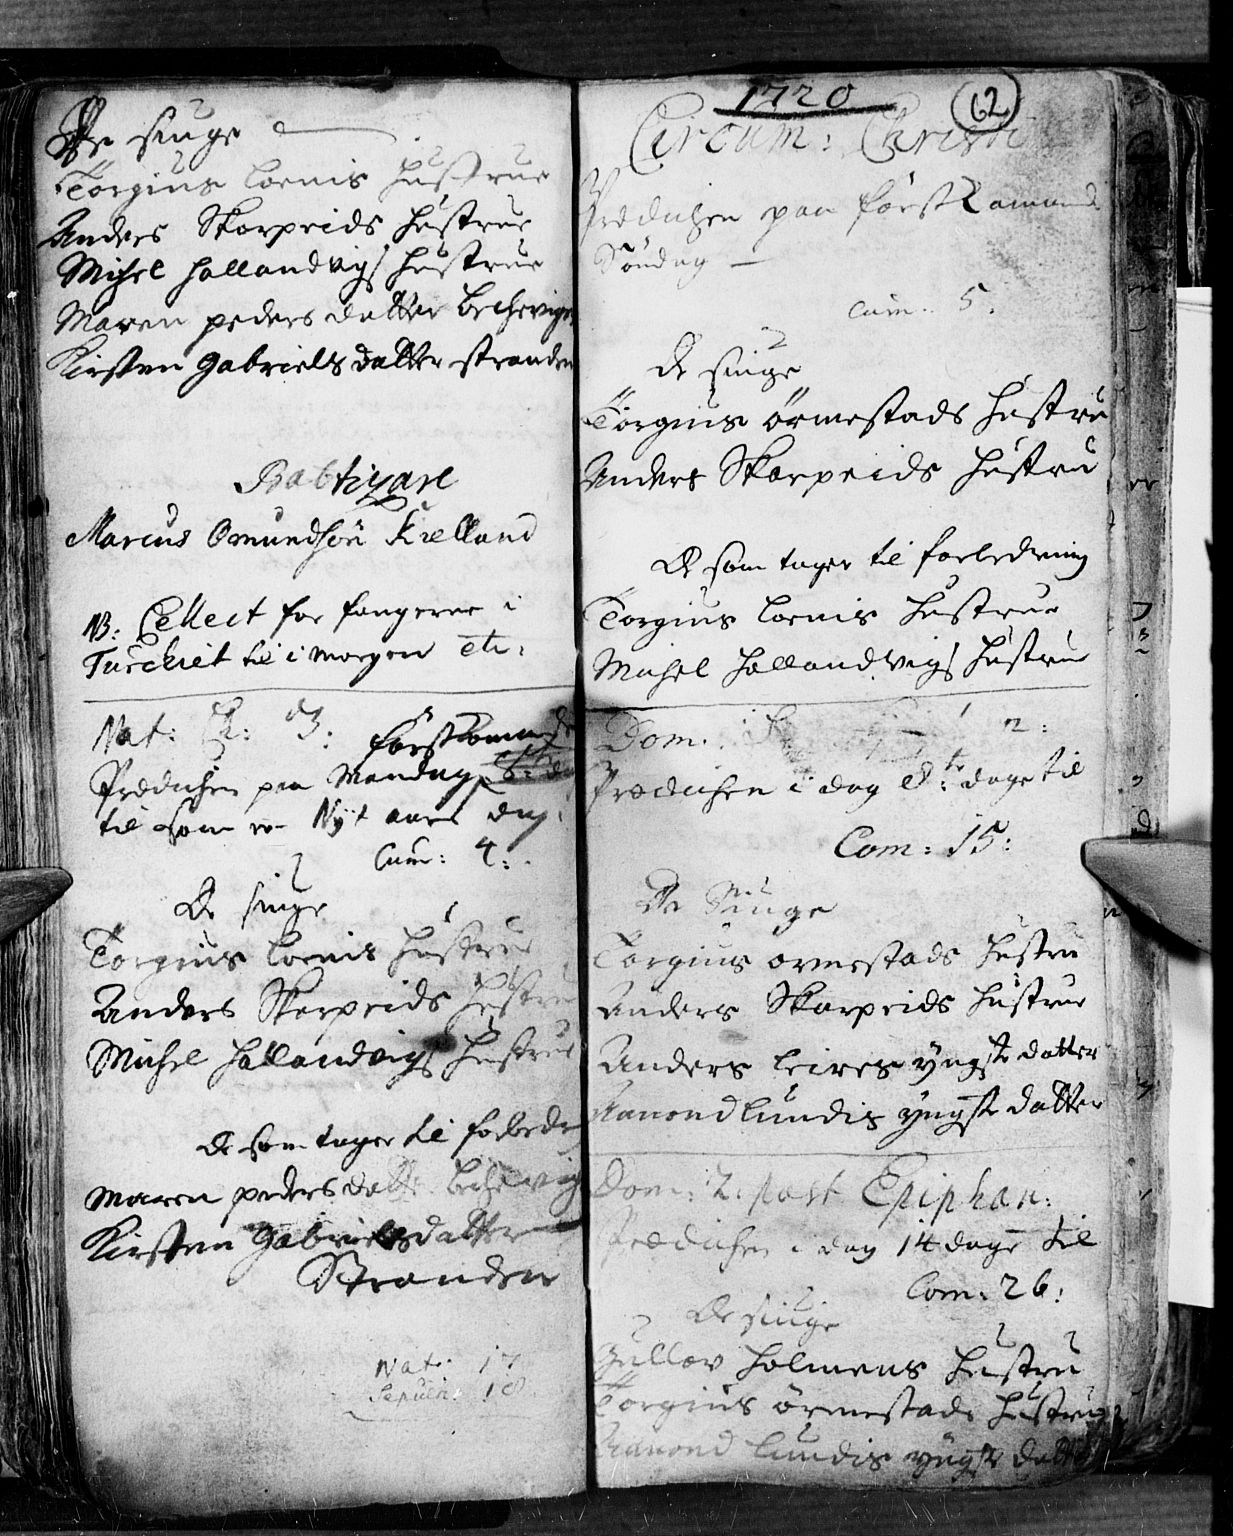 De siuge
Torgius Loenis Hustrue
Anders Skarpeids Hustrue
Michel Hallandvigs Hustrue
Maren peders datter
Kirsten Gabriels datter stranden
Babtizare
Marcus Omundsøn Kielland
NB: Collect for fangerne i
Tÿrchiet til i morgen etc:
Nat: d3: førstkommende
Prædichen paa Mandag
til som er Nÿt aars dag
Cum: 4:
De siuge
Torgius Loenis Hustrue
Anders Skarpeids Hustrue
Michel Hallandvigs Hustrue
De som tager til forbede
Maren peders datter
Kirsten Gabriels datter
Stranden
Nat: 17
Sepult: 18
1720
62
Circum: Christi
Prædichen paa først
Søndag
Cum: 5.
De siuge
Torgius Ørmestads Hustrue
Anders Skarpeids Hustru
De som tager til forbedring
Torgius Loenis Hustrue
Michel Hallandvigs Hustrue
Dom: 2:
Prædichen i dag 8te dage til
Com: 15:
De Siuge
Torgius Ormestads Hustru
Anders Skarpeids Hustrue
Anders Leires ÿngste datter
Aanond Lundis ÿngste datter
Dom: 2. post Epiphan:
Prædichen i dag 14 dage til
Com: 26:
De siuge
Gullov Holmens Hustru
Torgius Ørmestads Hustrue
Aanond Lundis ÿngste datter